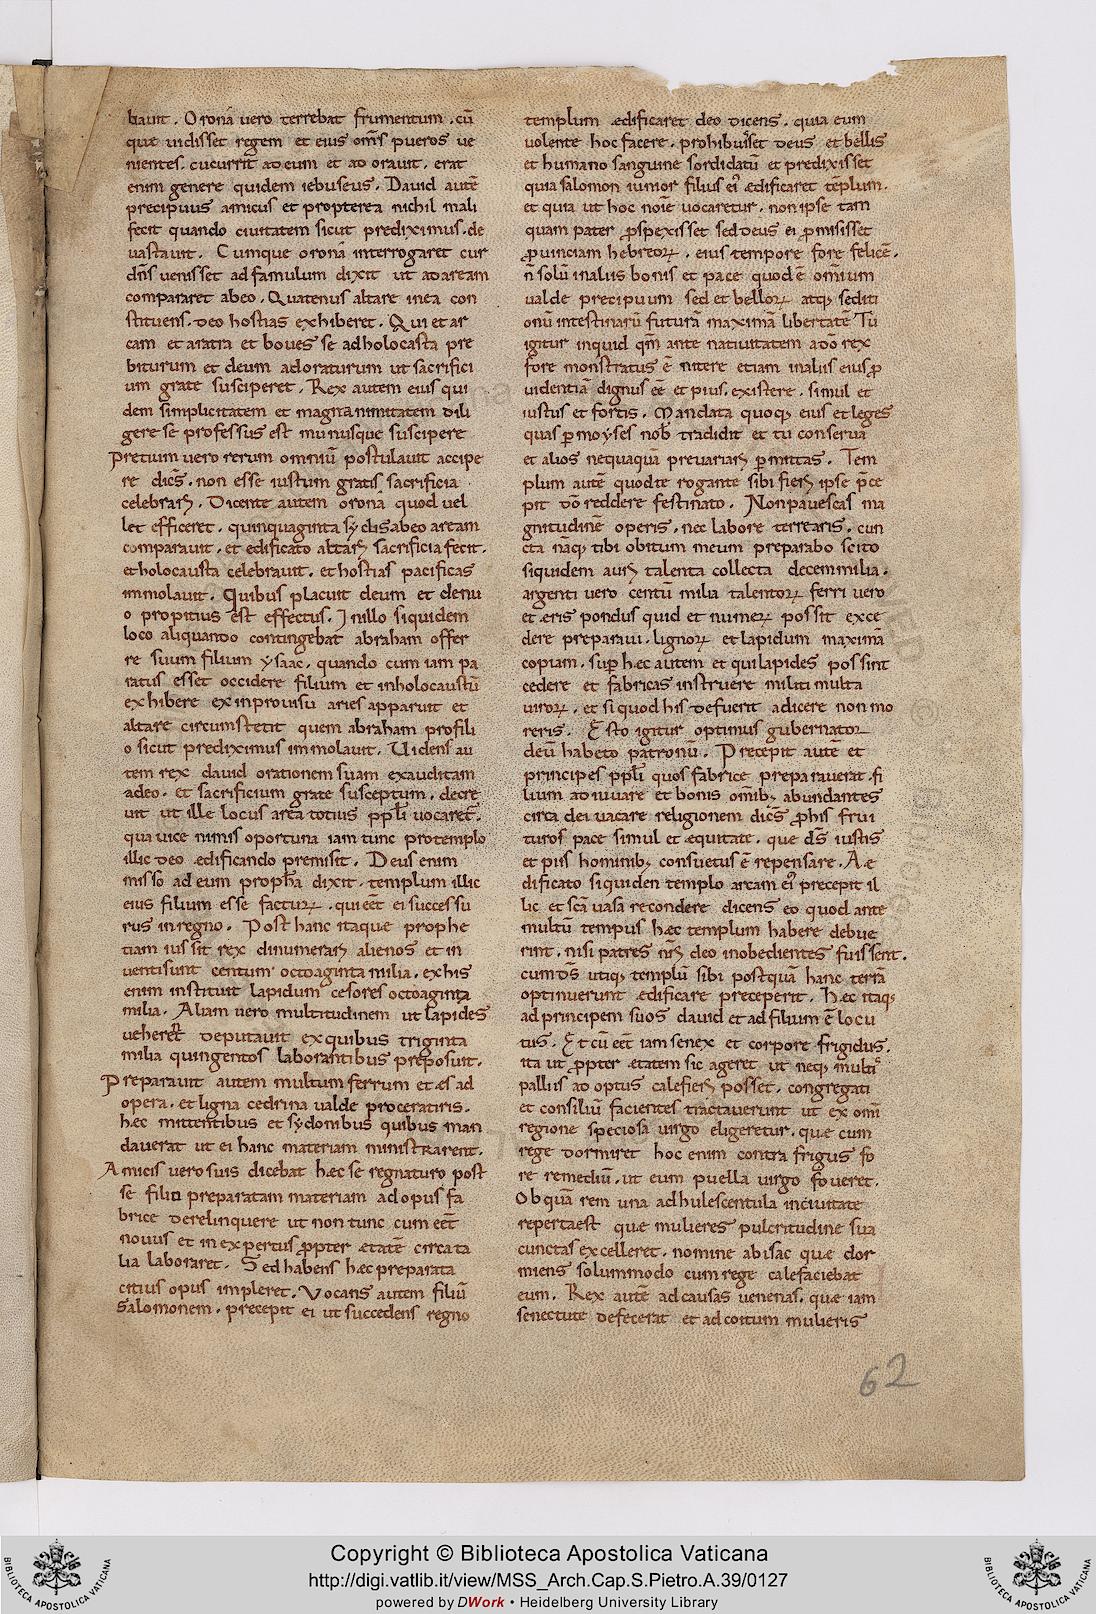 bauit. Oronā uero terrebat frumentum. cū
que uidisset regem et eius om̄s pueros ue
nientes. cucurrit ad eum et ad orauit. erat
enim genere quidem iebuseus. Dauid autē
precipuus amicus et propterea nichil mali
fecit quando ciuitatem sicut prediximus. de
uastauit. Cumque oronā interrogaret cur
dn̄s uenisset ad famulum dixit ut ad aream
compararet abeo. Quatenus altare inea con
stituens. deo hostias exhiberet. Qui et ar
eam et aratra et boues se adholocasta pre
biturum et deum adoraturum ut sacrifici
um grate susciperet. Rex autem eius qui
dem simplicitatem et magnanimitatem dili
gere se professus est munusque suscipere
Pretium uero rerum omniū postulauit accipe
re dicēs. non esse iustum gratis sacrificia
celebrarꝫ. Dicente autem oronā quod uel
let efficeret. quinquaginta syclis abeo aream
comparauit. et edificato altarꝫ sacrificia fecit.
et holocausta celebrauit. et hostias pacificas
immolauit. Quibus placuit deum et denu
o propitius est effectus. Inillo siquidem
loco aliquando contingebat abraham offer
re suum filium ysaac. quando cum iam pa
ratus esset occidere filium et inholocaustū
exhibere ex inprouisu aries apparuit et
altare circumstetit quem abraham profili
o sicut prediximus immolauit. Uidens au
tem rex dauid orationem suam exauditam
a deo. et sacrificium grate susceptum. decre
uit ut ille locus area totius pp̄li uocaret̄.
qua uice nimis oportuna iam tunc pro templo
illic deo ædificando premisit. Deus enim
misso ad eum proph̄a dixit. templum illic
eius filium esse facturꝝ. qui eēt ei successu
rus in regno. Post hanc itaque prophe
tiam iussit rex dinumerarꝫ alienos et in
uenti sunt centum octoaginta milia. ex his
enim instituit lapidum cesores octoaginta
milia. Aliam uero multitudinem ut lapides
ueheret deputauit ex quibus triginta
milia quingentos laborantibus preposuit.
Preparauit autem multum ferrum et æs ad
opera. et ligna cedrina ualde proceratiris.
hæc mittentibus et sydonibus quibus man
dauerat ut ei hanc materiam ministrarent.
Amicis uero suis dicebat hæc se regnaturo post
se filio preparatam materiam ad opus fa
brice derelinquere ut non tunc cum eēt
nouus et inexpertus ꝓpter ætatē circa ta
lia laboraret. Sed habens hæc preparata
citius opus impleret. Uocans autem filiū
salomonem. precepit ei ut succedens regno
templum ædificaret deo dicens. quia eum
uolente hoc facere. prohibuisset deus et bellis
et humano sanguine sordidatū et predixisset
quia salomon iunior filius ei' ædificaret tēplum.
et quia ut hoc noīe uocaretur. non ipse tam
quam pater ꝓspexisset sed deus ei ꝓmisisset
ꝓuinciam hebreorꝝ. eius tempore fore felicē.
n̄ solū inaliis bonis et pace quod ē omīum
ualde precipuum sed et bellorꝝ atqꝫ sediti
onū intestinarū futurā maximā libertatē Tu
igitur inquid qm̄ ante natiuitatem a dō rex
fore monstratus ē nitere etiam inaliis eius ꝓ
uidentiā dignus eē et pius. existere. simul et
iustus et fortis. Mandata quoqꝫ eius et leges
quas ꝑ moyses nob̄ tradidit et tu conserua
et alios nequaquā preuariarꝫ ꝑmittas. Tem
plum autē quod te rogante sibi fierꝫ ipse p̄ce
pit dō reddere festinato. Non pauescas ma
gnitudinē operis. nec labore terrearis. cun
cta nāqꝫ tibi obitum meum preparabo scito
siquidem aurꝫ talenta collecta decemmilia.
argenti uero centū milia talentorꝝ ferri uero
et æris pondus quid et numerꝝ possit exce
dere preparaui. lignorꝝ et lapidum maximā
copiam. suꝑ hæc autem et qui lapides possint
cedere et fabricas instruere militi multa
uirorꝝ. et si quod his defuerit adicere non mo
reris. Esto igitur optimus gubernator
deū habeto patronū. Precepit autē et
principes pp̄li quos fabrice preparauerat. fi
lium adiuuare et bonis omībꝫ abundantes
circa dei uacare religionem dicēs ꝓ his frui
turos pace simul et æquitate. que ds̄ iustis
et piis hominibꝫ consuetus ē repensare. Aæ
dificato siquiden templo arcam ei' precepit il
lic et scā uasa recondere dicens eo quod ante
multū tempus hæc templum habere debue
rint. nisi patres nr̄i deo inobedientes fuissent.
cum ds̄ utiqꝫ templū sibi postquā hanc terrā
optinuerunt ædificare preceperit. hæc itaqꝫ
ad principem suos dauid et ad filium ē locu
tus. Et cū eēt iam senex et corpore frigidus.
ita ut ꝓpter ætatem sic ageret ut neqꝫ multi'
palliis ad optus calefierꝫ posset. congregati
et consiliū facientes tractauerunt ut ex omī
regione speciosa uirgo eligeretur. quæ cum
rege dormiret hoc enim contra frigus fo
re remediū. ut eum puella uirgo foueret.
Ob quā rem una adhulescentula inciuitate
reperta est quæ mulieres pulcritudine sua
cunctas excelleret. nomine abisac que dor
miens solummodo cum rege calefaciebat
eum. Rex autē ad causas uenenas. quæ iam
senectute defecerat et ad coitum mulieris
62
BIBLIOTECA APOSTOLICA VATICANA
Copyright © Biblioteca Apostolica Vaticana
http://digi.vatlib.it/view/MSS_Arch.Cap.S.Pietro.A.39/0127
powered by DWork • Heidelberg University Library
BIBLIOTECA APOSTOLICA VATICANA